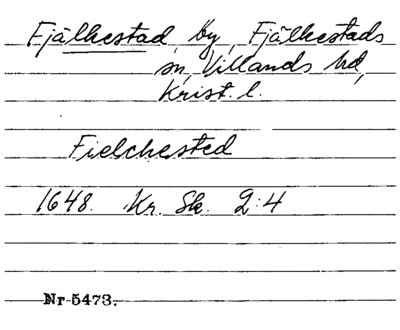 Fjälkestad by, Fjälkestads
sn, Villands hd,
Krist. l.
Fielchested
1648. Kr. Sk. 2:4
Nr 5473.